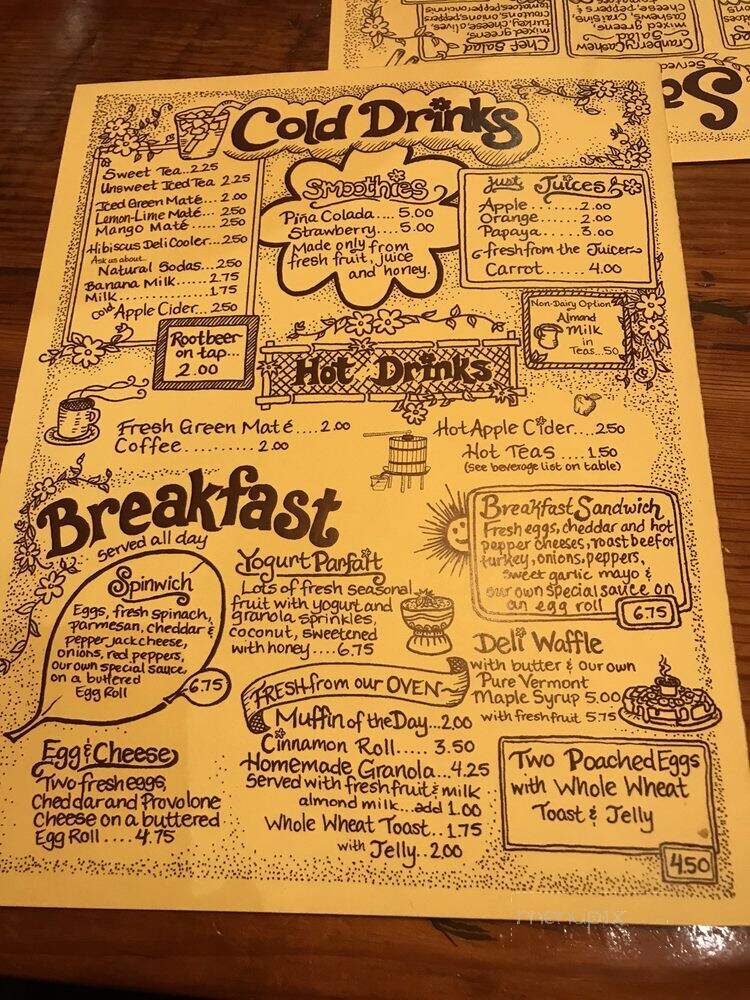 Chef Salad
mixed greens,
turkey, cheese, olives,
croutons, onions, peppers
Cranberry Cashew
Salad
mixed greens,
cashews, Craisins,
cheese, peppers &
Served
Cold Drinks
Sweet Tea...2.25
Unsweet Iced Tea 2.25
Iced Green Maté....2.00
Lemon-Lime Maté.....2.50
Mango Maté.....2.50
Hibiscus Deli Cooler...2.50
Ask us about..
Natural Sodas...2.50
Banana Milk.......2.75
Milk...............1.75
Cold Apple Cider...2.50
Rootbeer
on tap...
2.00
Smoothies
Piña Colada....5.00
Strawberry....5.00
Made only from
fresh fruit, juice
and honey.
Just Juices
Apple..........2.00
Orange........2.00
Papaya........3.00
fresh from the Juicer
Carrot.......4.00
Non-Dairy Option
Almond
Milk
in
Teas...50
Hot Drinks
Fresh Green Maté....2.00
Coffee...........2.00
Hot Apple Cider....2.50
Hot Teas....1.50
(See beverage list on table)
Breakfast
served all day
Spinwich
Eggs, fresh spinach,
parmesan, cheddar &
pepper jack cheese,
onions, red peppers,
our own special sauce,
on a buttered
Egg Roll
6.75
Yogurt Parfait
Lots of fresh seasonal
fruit with yogurt and
granola sprinkles,
coconut, sweetened
with honey....6.75
Breakfast Sandwich
Fresh eggs, cheddar and hot
pepper cheeses, roast beef or
turkey, onions, peppers,
sweet garlic mayo &
our own special sauce on
an egg roll
6.75
Deli Waffle
with butter & our own
Pure Vermont
Maple Syrup 5.00
with fresh fruit 5.75
FRESH from our OVEN
Muffin of the Day...2.00
Cinnamon Roll.....3.50
Homemade Granola...4.25
Served with fresh fruit & milk
almond milk...add 1.00
Whole Wheat Toast..1.75
with Jelly..2.00
Egg & Cheese
Two fresh eggs,
Cheddar and Provolone
Cheese on a buttered
Egg Roll....4.75
Two Poached Eggs
with Whole Wheat
Toast & Jelly
4.50
menupix